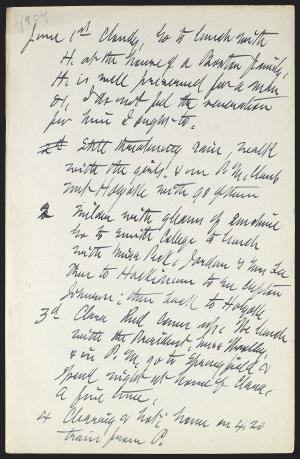 1904
June 1st Cloudy, Go to lunch with
H. at the house of a Boston family,
H. is well preserved for a man
81, I do not feel the veneration
for him I ought to.
2d Still threatening rain, walk
with the girls. & in P.M. Clara
Holyoke with go
2 Milder with gleams of sunshine
Go to Smith College to lunch
with Miss Peck, Jordan & Mrs Lee
then to Hockinum to see Clifton
Johnson: then back to Holyoke
3d Clara Reed comes up. We lunch
with the President, Miss Woolley,
& in P.M. go to Springfield &
Spend night at home of Clara,
A fine time,
4 Clearing & hot. home on 4.20
train from P.